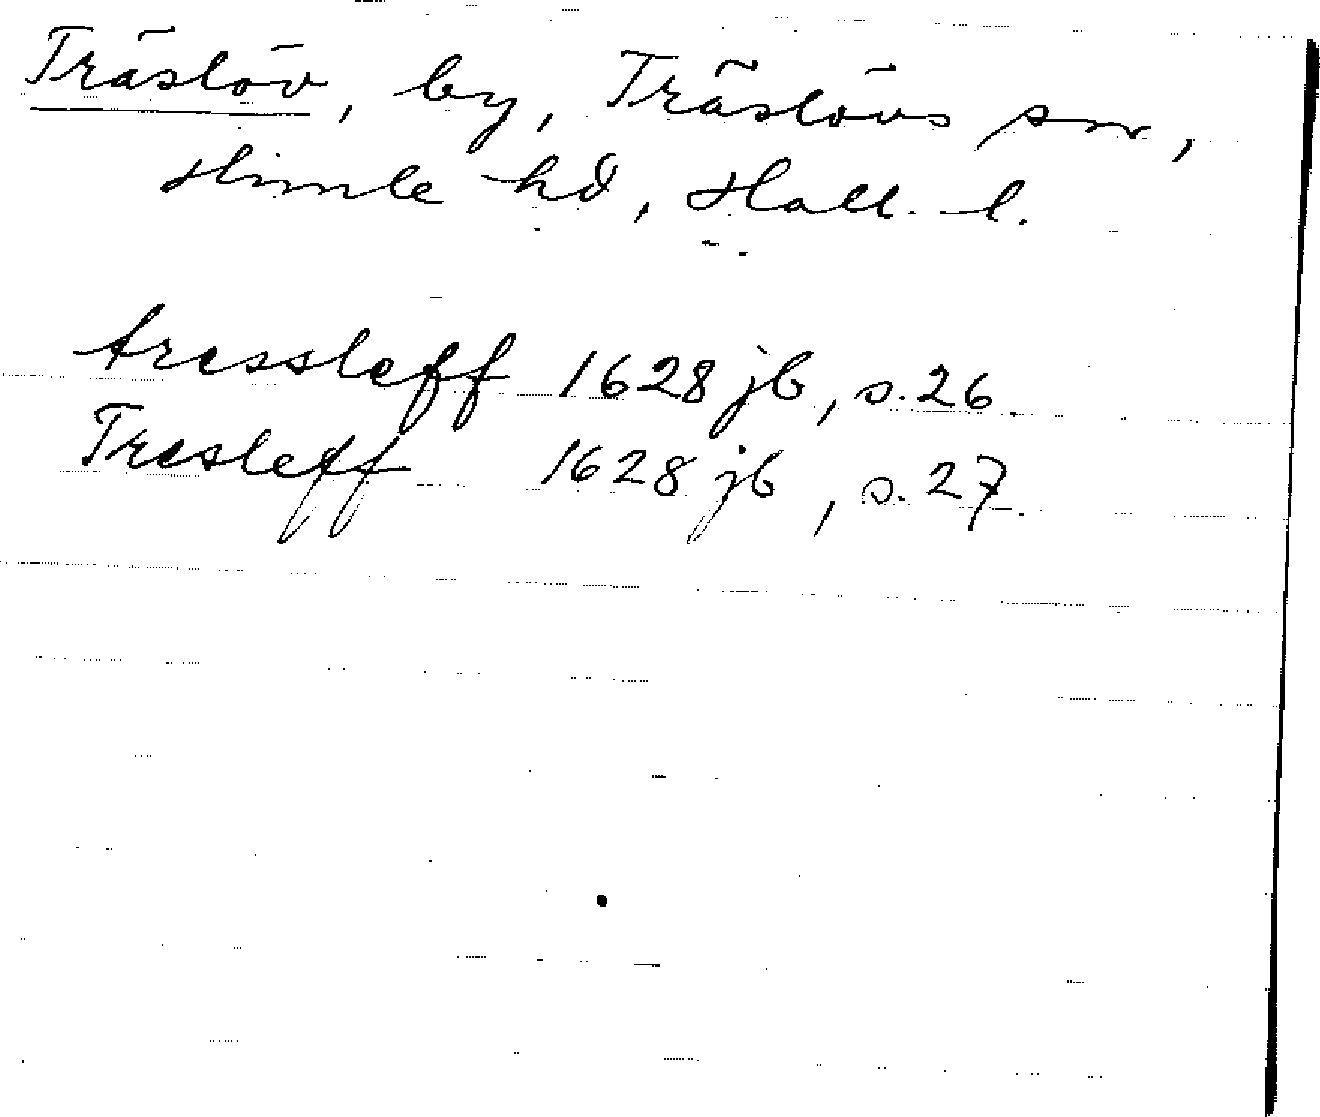 Träslöv, by, Träslövs sn,
Himle hd, Hall. l.
tressleff 1628 jb, s. 26.
Tresleff 1628 jb, s. 27.